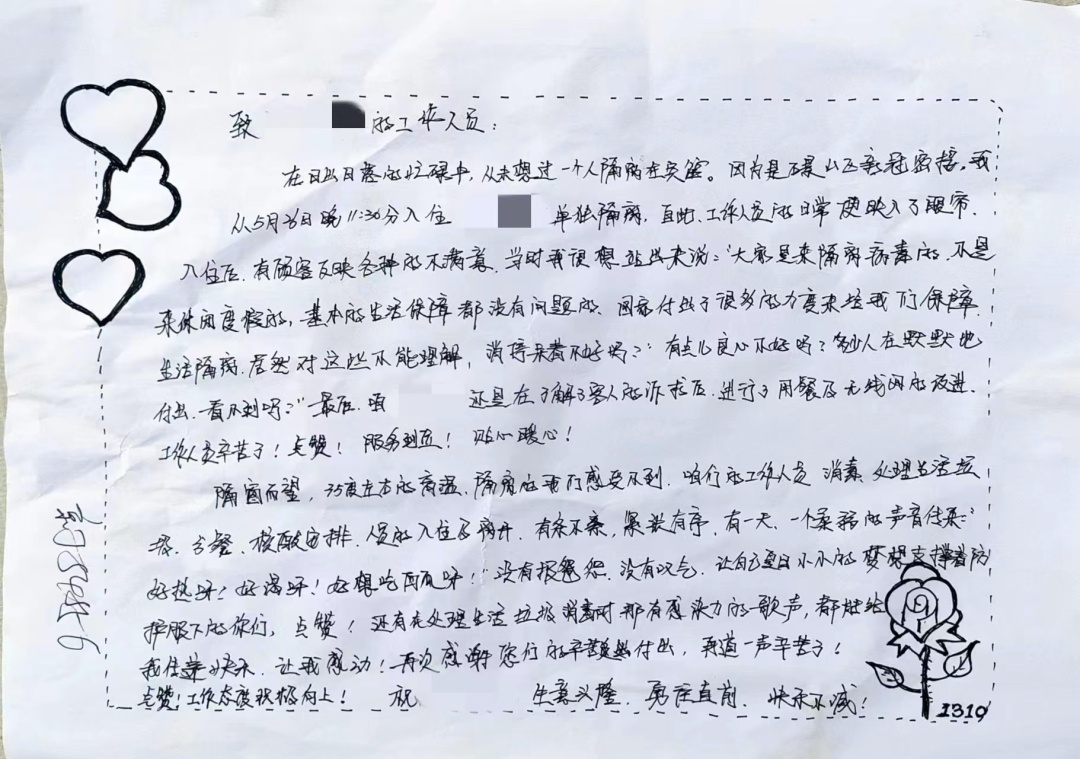 致 的工作人员：
在日出日落的忙碌中，从未想过一个人隔离在宾馆。因为是石景山区新冠密接，我
从5月26日晚11:30分入住 单独隔离，自此，工作人员的日常便映入了眼帘。
入住后，有顾客反映各种的不满意，当时我很想站出来说："大家是来隔离病毒的，不是
来休闲度假的，基本的生活保障都没有问题的，国家付出了很多的力度来给我们保障
生活隔离，居然对这些不能理解，消停呆着不好吗？" 有点儿良心不好吗？多少人在默默地
付出，看不到吗？" 最后，咱 还是在了解了客人的诉求后，进行了用餐及无线网的改进。
工作人员辛苦了！点赞！服务到位！贴心暖心！
隔窗而望，35度左右的高温，隔离的我们感受不到，咱们的工作人员 消毒、处理生活垃
圾、分餐、核酸安排、人员的入住及离开，有条不紊，紧张有序，有一天，一个柔弱的声音传来："
好热呀！好渴呀！好想吃西瓜呀！" 没有报怨，没有叹气，让自己夏日小小的梦想支撑着防
护服下的你们，点赞！还有在处理生活垃圾消毒时那有感染力的歌声，都带给
我快乐，让我感动！再次感谢您们的辛苦付出，再道一声辛苦了！
点赞！工作态度积极向上！ 祝 生意兴隆，勇往直前，快乐不减！
1319